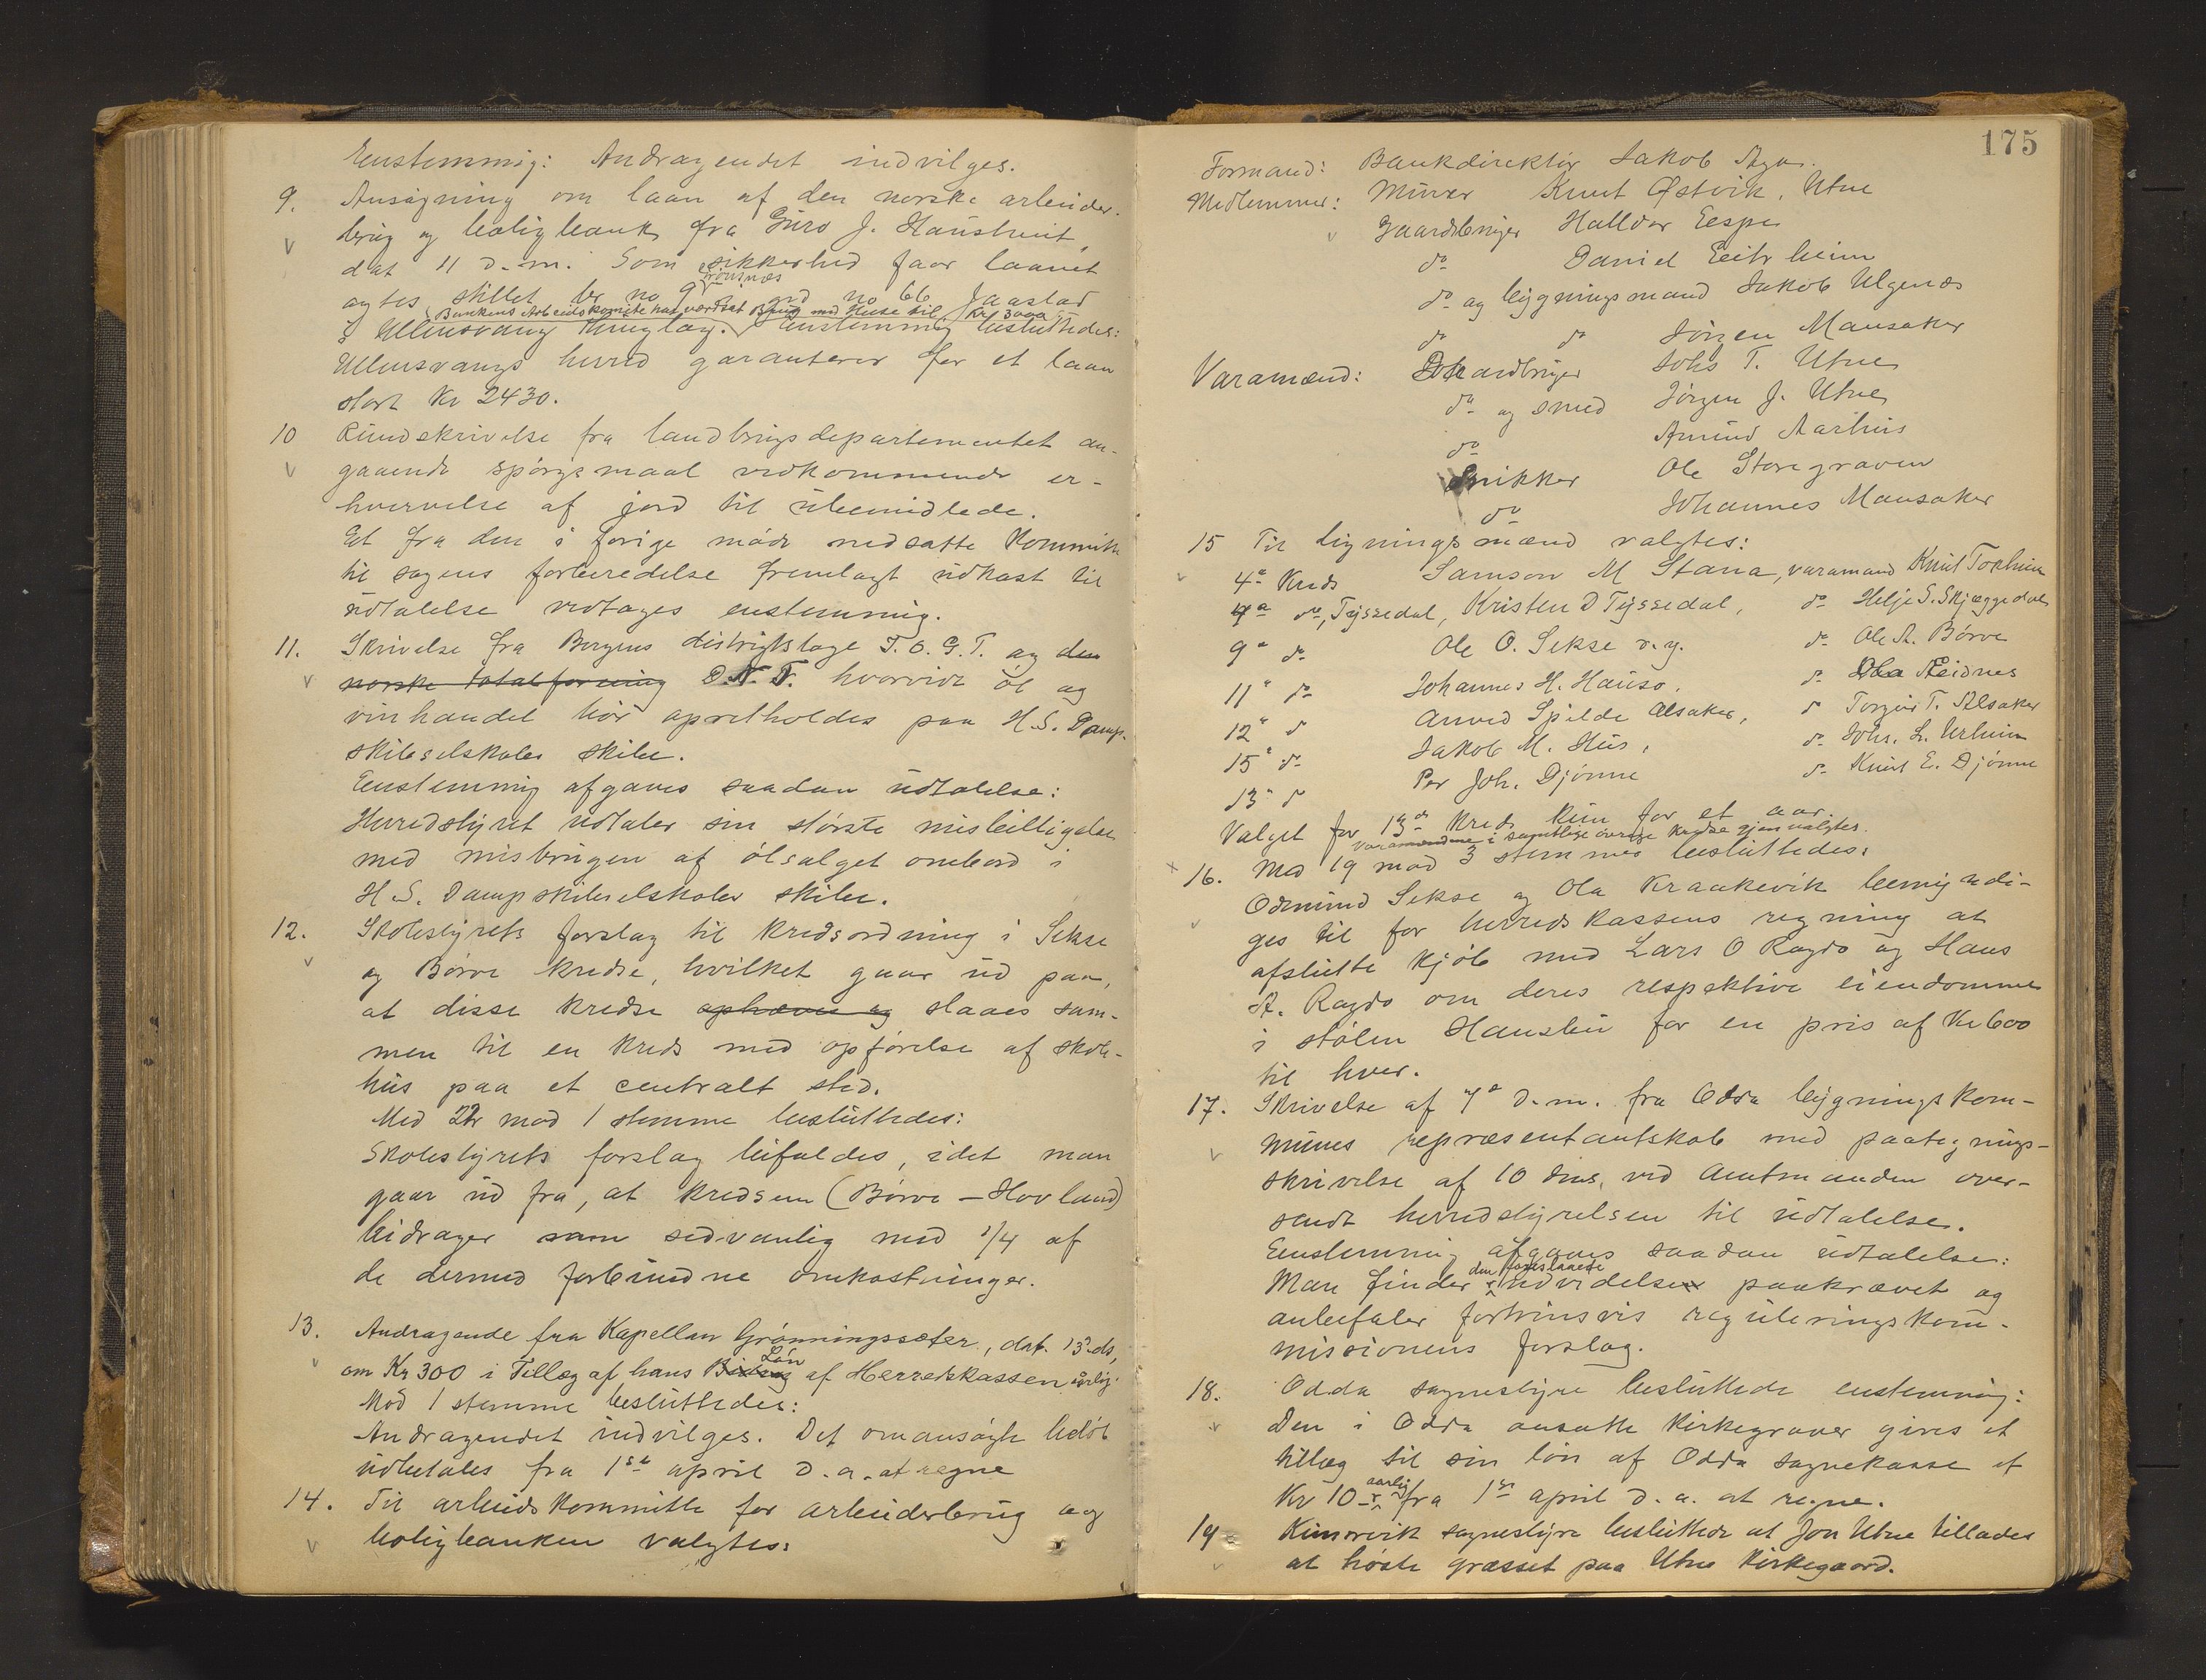 Enstemmig: Andragendet indvilges.
9. Ansøgning om laan af den norske arbeider-
brug og boligbank fra Guro J. Haustveit,
dat 11 d.m. Som sikkerhed for laanet
agtes stillet br no 9 Grønnæs grd no 66 Jaastad
Bankens Arbeidskomite har værdsat Brug med Huse til Kr 3000
i Ullensvang thinglag. Enstemmig besluttedes:
Ullensvangs herred garanterer for et laan
stort Kr 2430.
10 Rundskrivelse fra landbrugsdepartementet an-
gaaende spørgsmaal vedkommende er-
hvervelse af jord til ubemidlede.
Et fra den i forige møde nedsatte Kommitte
til sagens forberedelse fremlagt udkast til
udtalelse vedtages enstemmig.
11. Skrivelse fra Bergens distriktsloge I.O.G.T. og den
norske totalforening D.N.T. hvorvidt øl og
vinhandel bør opretholdes paa H.S. Damp-
skibsselskabs skibe.
Enstemmig afgaves saadan udtalelse:
Herredstyret udtaler sin største misbilligelse
med misbrugen af ølsalget ombord i
H.S. Dampskibsselskabs skibe.
12. Skolestyrets forslag til kredsordning i Sekse
og Børve kredse, hvilket gaar ud paa,
at disse kredse ophæves og slaaes sam-
men til en kreds med opførelse af skole-
hus paa et centralt sted.
Med 22 mod 1 stemme besluttedes:
Skolestyrets forslag bifaldes, idet man
gaar ud fra, at kredsen (Børve - Hovland)
bidrager som sedvanlig med 1/4 af
de dermed forbundne omkostninger.
13. Andragende fra Kapellan Grønningssæter, dat. 13 ds,
om Kr 300 i Tillæg af hans Bidrag Løn af Herredskassen årlig.
Mod 1 stemme besluttedes:
Andragendet indvilges. Det omansøgte beløb
udbetales fra 1ste april d.a. at regne
14. Til arbeidskommitte for arbeiderbrug og
boligbanken valgtes:
175
Formand: Bankdirektør Jakob Aga.
Medlemmer: Murer Knut Østvik, Utne
Gaardbruger Halldor Espe
do Daniel Eitrheim
do og bygningsmand Jakob Ulgenæs
do do Jørgen Mansaker
Varamænd: Gaardbruger Johs T. Utne
do og smed Jørgen J. Utne
do Amund Aarhus
Snikker Ole Storegraven
do Johannes Mansaker
15 Til ligningsmænd valgtes:
4de Kreds Samson M Stana, varamand Knut Tokheim
4de do, Tyssedal, Kristen D Tyssedal, do Helje S. Skjæggedal
9de do Ole O. Sekse v.y. do Ole A. Børve
11te do Johannes H. Hauso. do Ola Reidnes
12te do Amund Spilde Alsaker, do Torgeir T. Alsaker
15de do Jakob M. Hus, do Johs. L. Urheim
13de do Per Joh. Djønne do Knut E. Djønne
Valget for 13de Kreds kun for et aar.
Varamændene i samtlige øvrige kredse gjenvalgtes.
16. Med 19 mod 3 stemmer besluttedes:
Odmund Sekse og Ola Kraakevik bemyndi-
ges til for herredskassens regning at
afslutte kjøb med Lars O Ragde og Hans
A. Ragde om deres respektive eiendomme
i stølen Hanslu for en pris af Kr 600
til hver.
17. Skrivelse af 7de d.m. fra Odda bygningskom-
munes repræsentantskab med paategnings-
skrivelse af 10 dms. ved Amtmanden over-
sendt herredstyrelsen til udtalelse.
Enstemmig afgaves saadan udtalelse:
Man finder den foreslaaede udvidelse paakrævet og
anbefaler fortrinsvis reguleringskom-
missionens forslag.
18. Odda sognestyre besluttede enstemmig:
Den i Odda ansatte kirkegraver gives et
tillæg til sin løn af Odda sognekasse af
Kr 10 aarlig fra 1ste april d.a. at regne.
19 Kinservik sognestyre besluttede at Jon Utne tillades
at høste græsset paa Utne Kirkegaard.